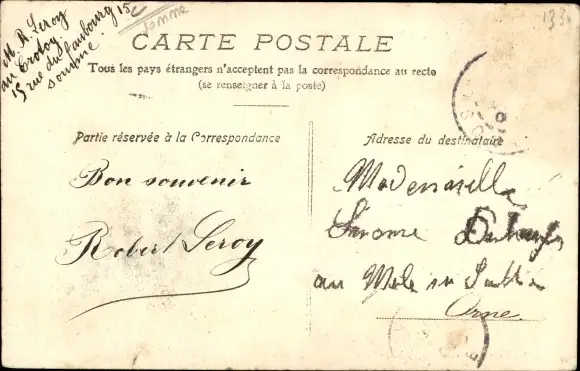 M. R. Leroy
au Crotoy
15 rue du faubourg
somme
15c
somme
CARTE POSTALE
Tous les pays étrangers n'acceptent pas la correspondance au recto
(se renseigner à la poste)
Partie réservée à la Correspondance
Bon souvenir
Robert Leroy
Adresse du destinataire
Mademoiselle
Simone
au Mele su
Orne